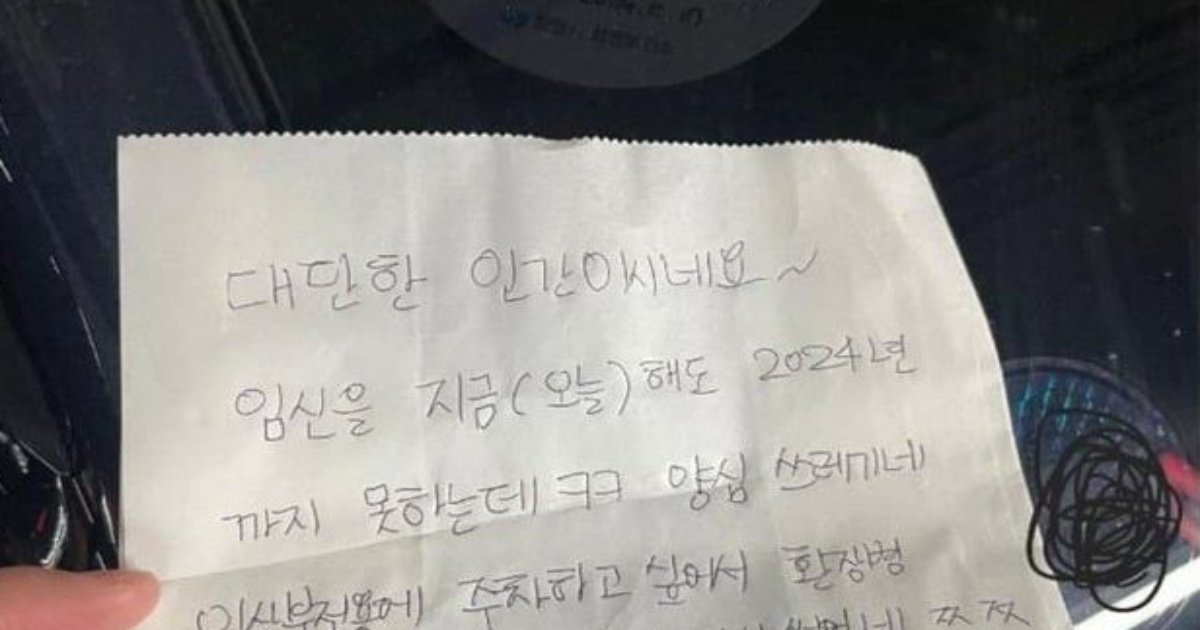 대단한 인간이시네요~
임신을 지금(오늘)해도 2024년
까지 못하는데 ㅋㅋ 양심 쓰레기네
임산부전용에 주차하고 싶어서 환장병
쯔쯔